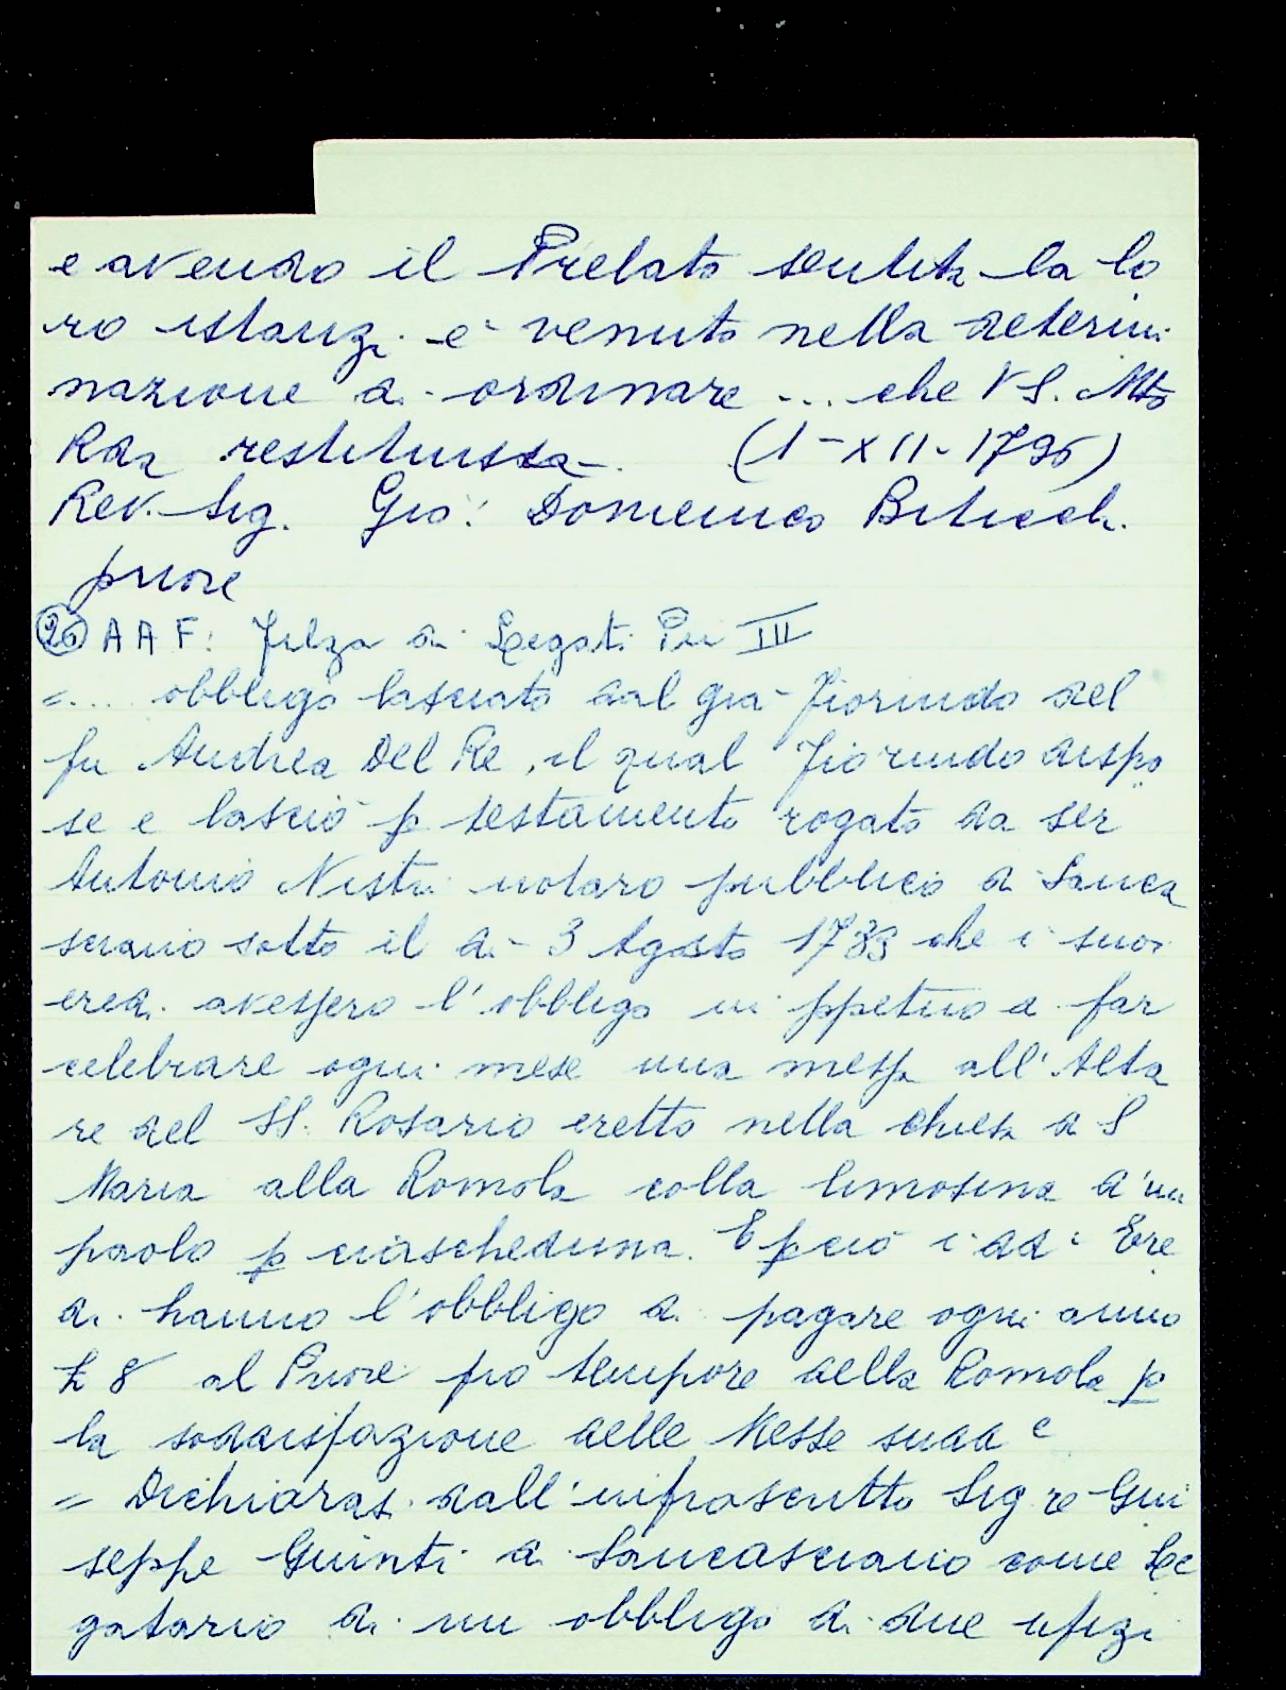 e avendo il Prelato sentita la lo
ro istanza è venuto nella determi
nazione di ordinare ... che V S. Mto
Rda restituisca (1-XII-1796)
Rev. Sig. Gio: Domenico Bitecchi
priore
26 A A F: Filza di Legati Pii III
=.... obbligo lasciato dal già Fiorindo del
fu Andrea Del Re, il qual Fiorindo dispo
se e lasciò p testamento rogato da ser
Antonio Nesti notaro pubblico di Sanca
sciano sotto il dì 3 Agosto 1733 che i suoi
eredi avessero l'obbligo in ppetuo di far
celebrare ogni mese una messa all'Alta
re del SS. Rosario eretto nella chiesa di S
Maria alla Romola colla limosina d'un
paolo p ciascheduna. E pciò i dd i Ere
di hanno l'obbligo di pagare ogni anno
£ 8 al Priore pro tempore della Romola p
la soddisfazione delle Messe sudd e
= Dichiarasi dall'infrascritto Sig re Giu
seppe Giunti di Sancasciano come Le
gatario di un obbligo di due ufizi